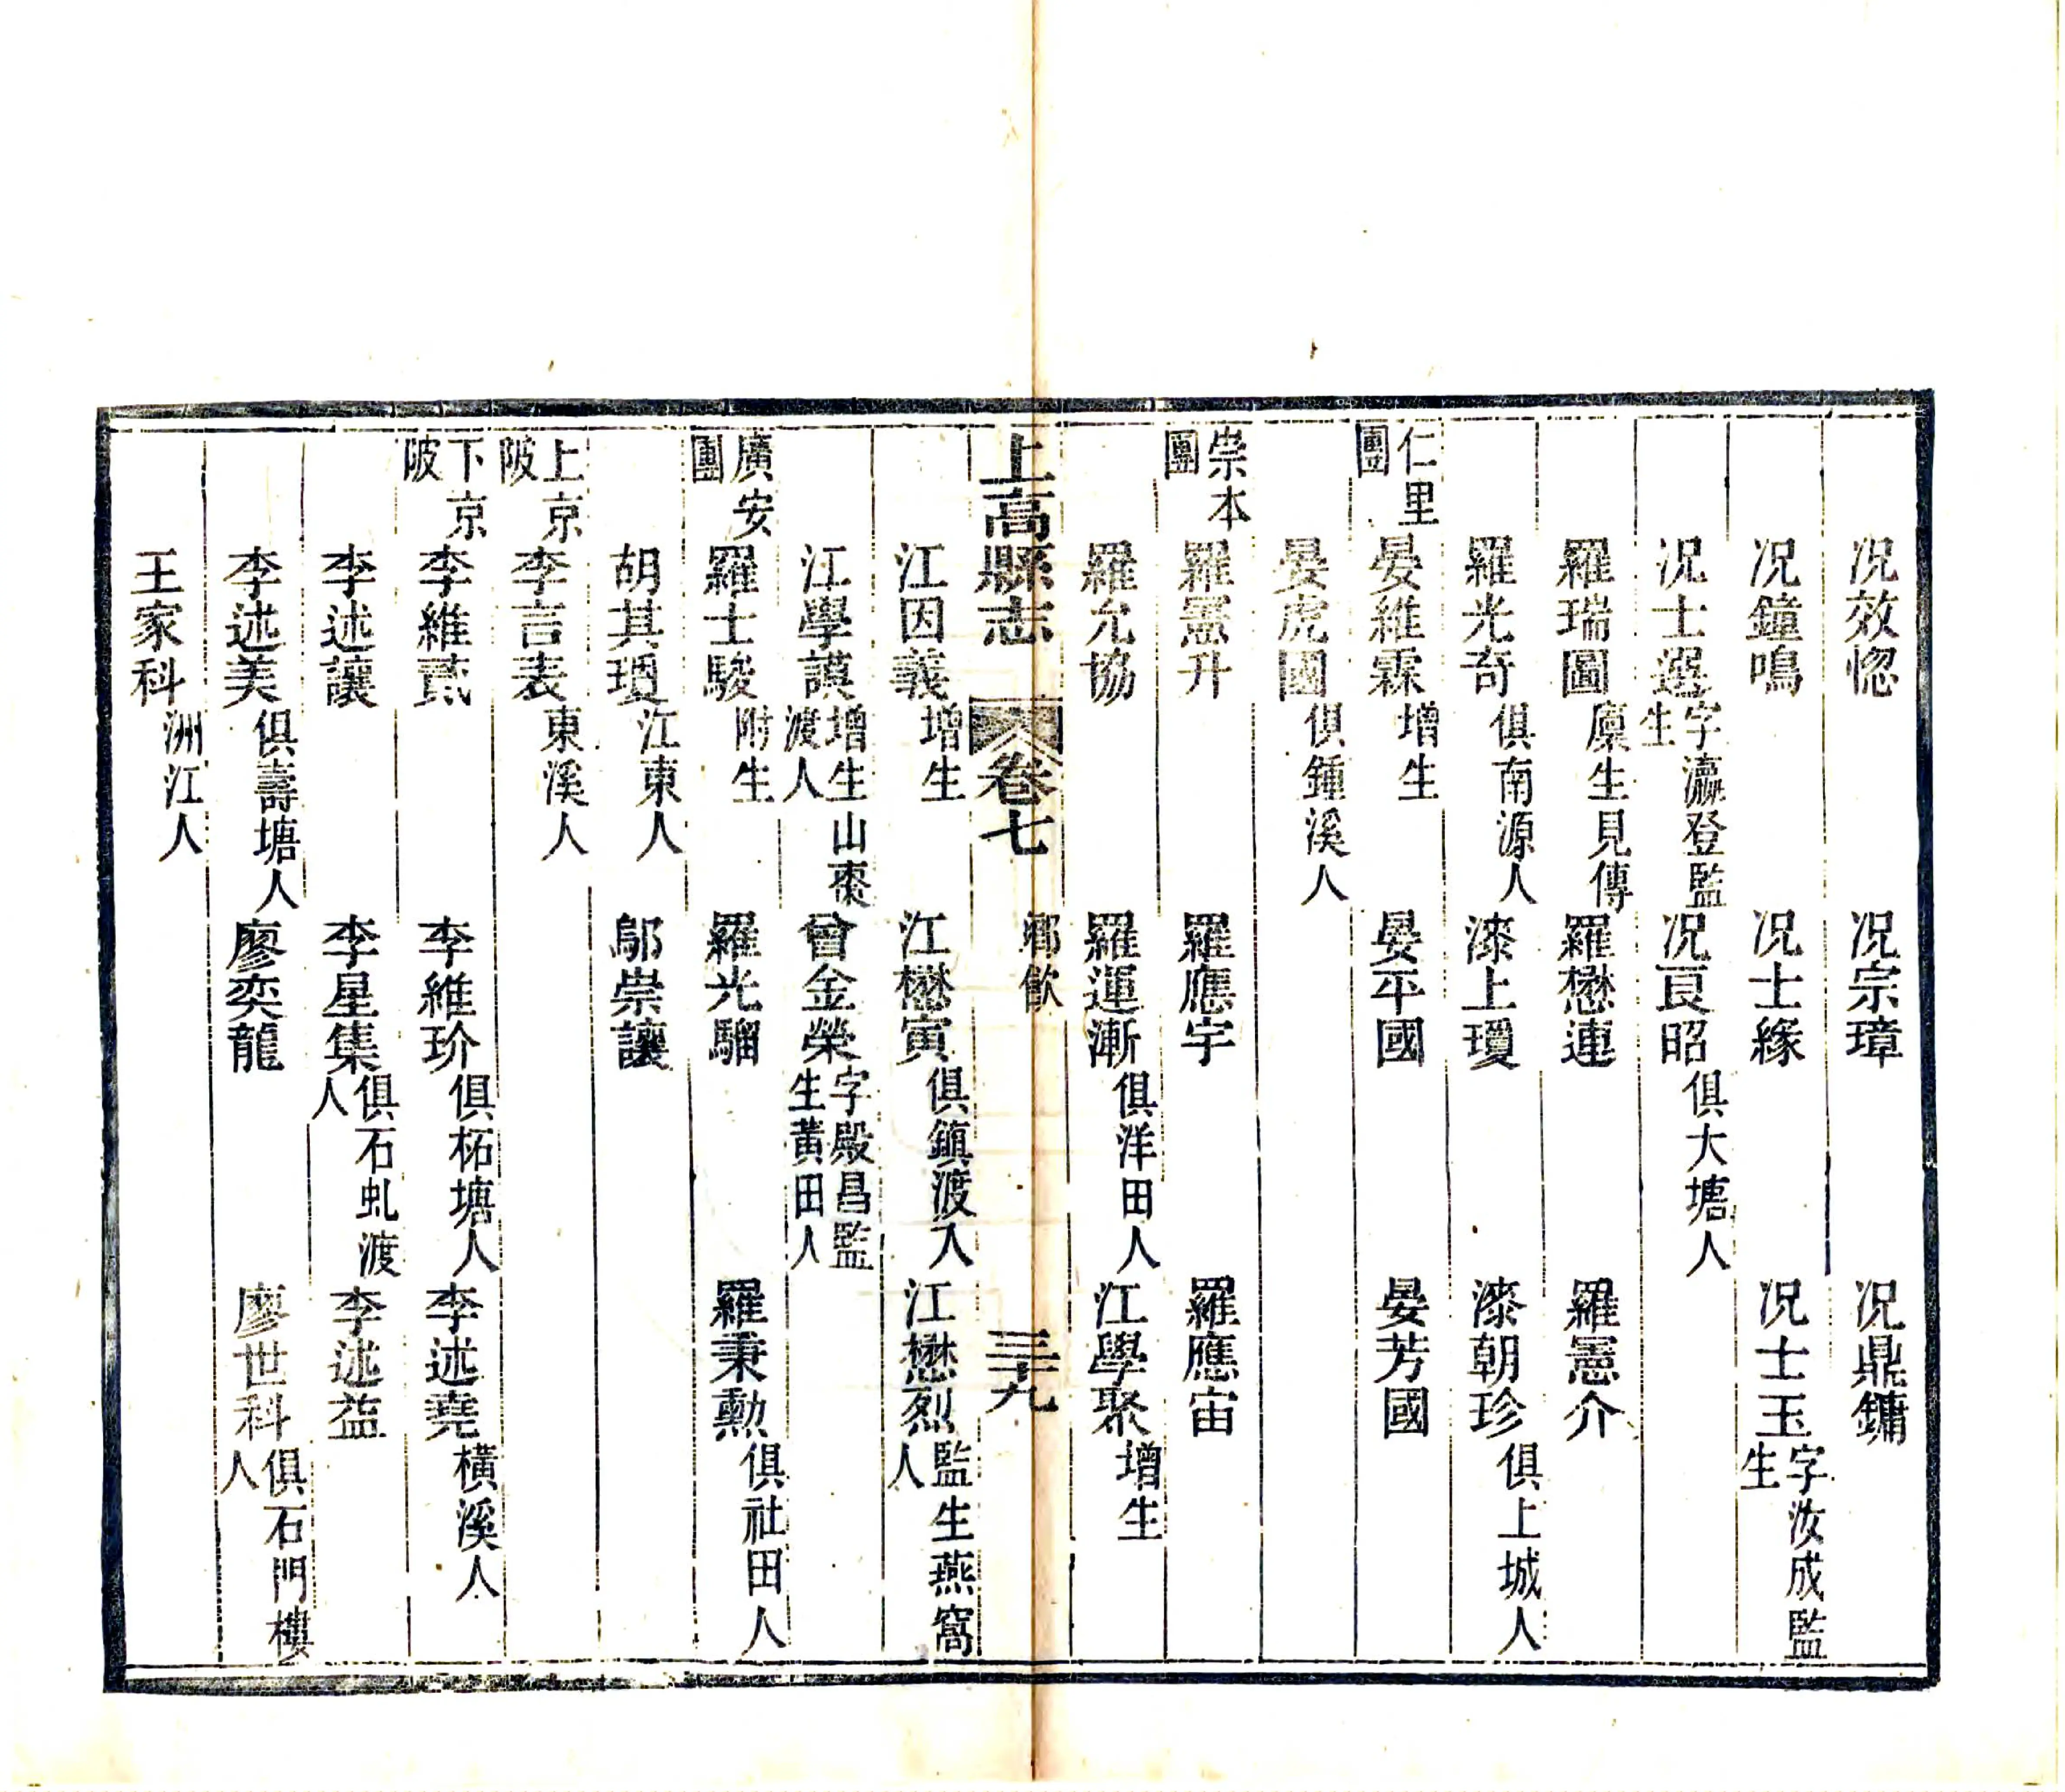 况效惚　况宗璋　况鼎鏞
况鐘鳴　况士緣　况士玉字汝成監生
况士選字瀛登監生　况良昭俱大塘人
羅瑞圖廩生見傳　羅懋連　羅憲介
羅光奇俱南源人　漆上瓊　漆朝珍俱上城人
仁里團　晏維霖增生　晏平國　晏芳國
晏虎國俱鍾溪人
崇本團　羅憲升　羅應宇　羅應宙
羅允協　羅運漸俱洋田人　江學聚增生
上高縣志　卷七　鄉飲　三十九
江因義增生　江懋寅俱鎮渡人　江懋烈監生燕窩人
江學謨增生山棗渡人　曾金榮字殿昌監生黃田人
廣安團　羅士駿附生　羅光騮　羅秉勳俱社田人
胡其江東人　鄔崇讓
上京陂　李言表東溪人
下京陂　李維蕡　李維玠俱柘塘人　李述堯橫溪人
李述讓　李星集俱石虬渡人　李述益
李述美俱壽塘人　廖奕龍　廖世科俱石門樓人
王家科洲江人